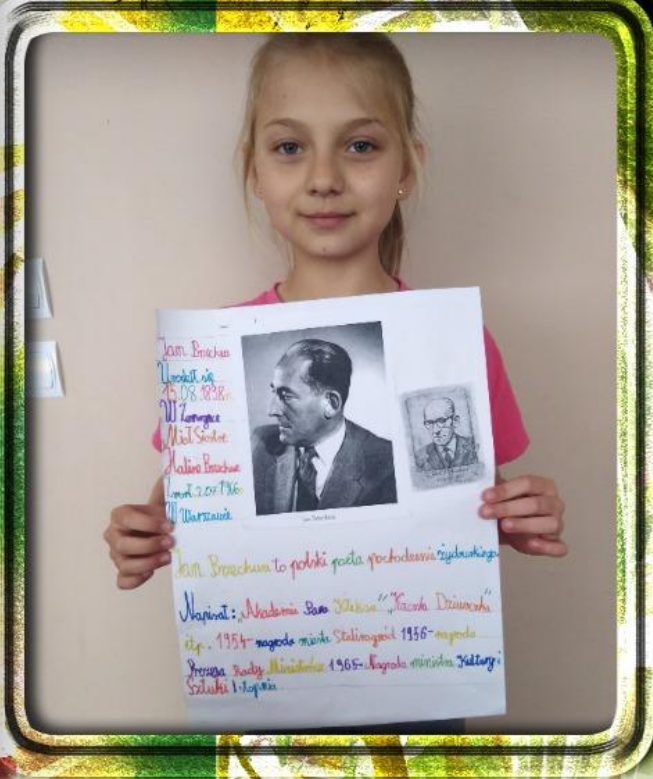 Jan Brzechwa
Urodził się
15.08.1898r
W Żmerynce
Miał Siostrę
Halinę Brzechwę
Zmarł 2.07.1966r
W Warszawie
Jan Brzechwa to polski poeta pochodzenia żydowskiego
Napisał: "Akademia Pana Kleksa" "Kaczka Dziwaczka"
itp. 1954- nagroda miasta Stalinogród 1956- nagroda
Prezesa Rady Ministrów 1965- Nagroda ministra Kultury i
Sztuki I stopnia